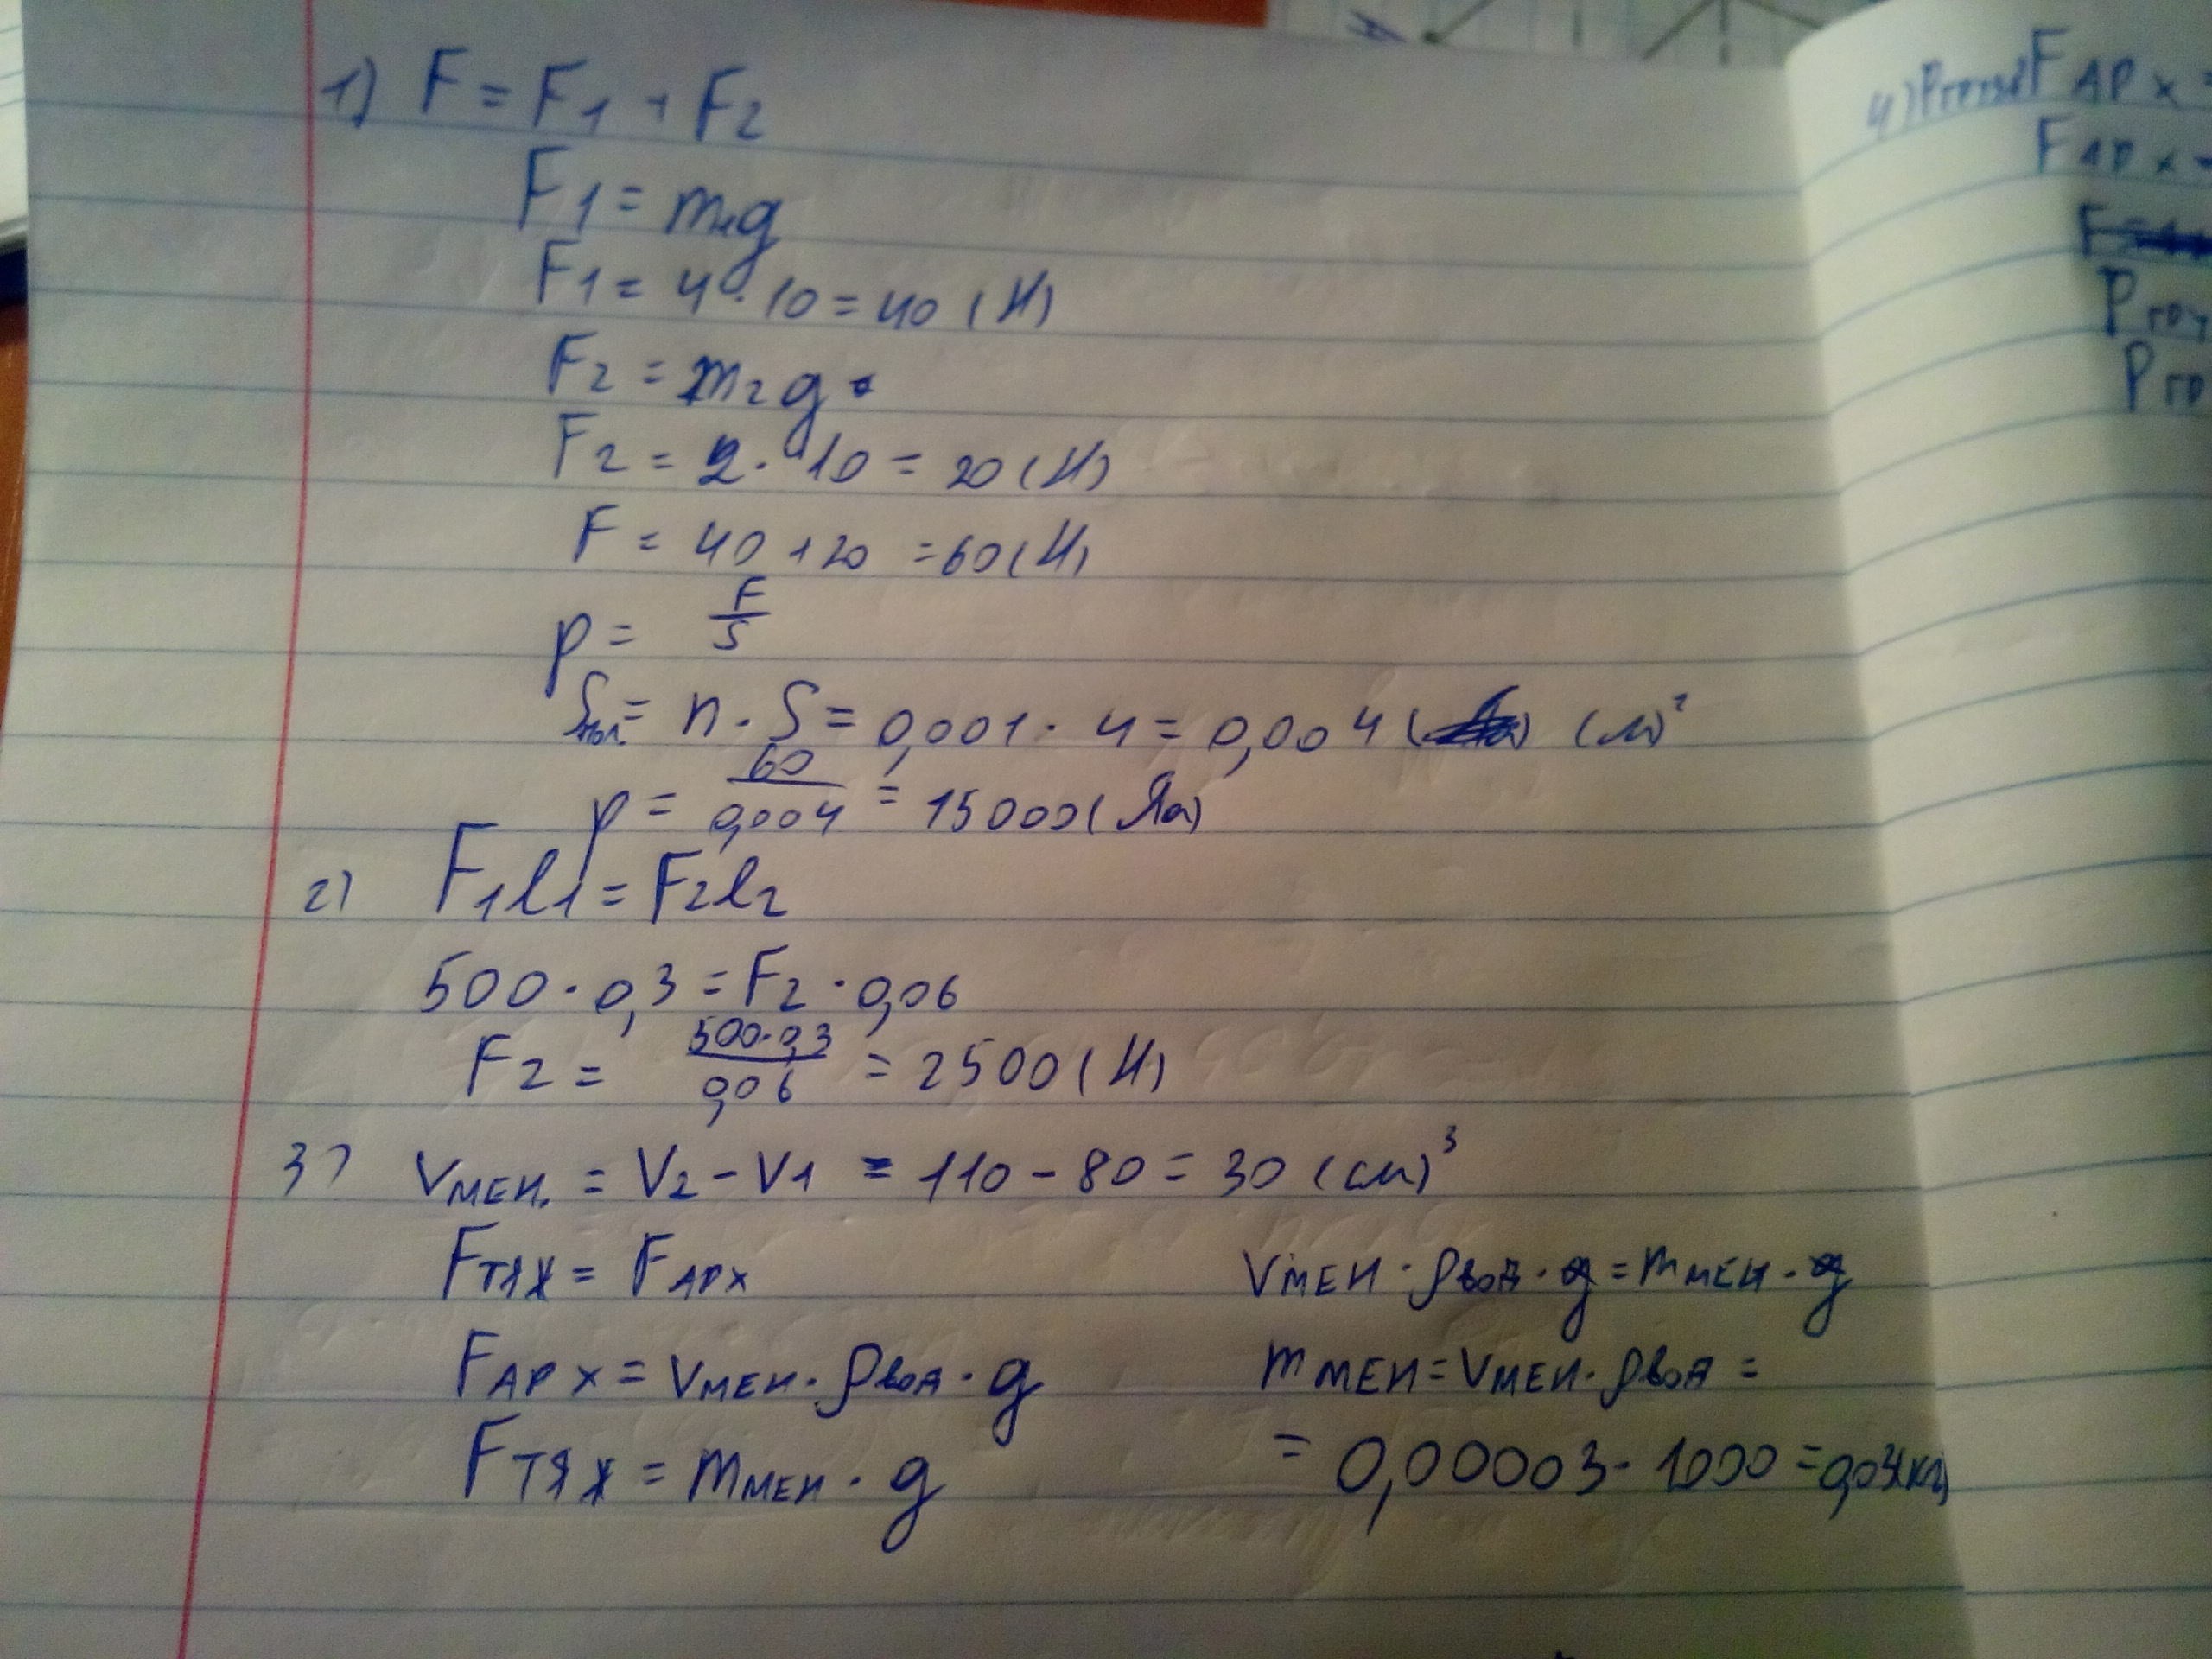 1) F = F1 + F2
F1 = m1g
F1 = 4 · 10 = 40 (Н)
F2 = m2g
F2 = 2 · 10 = 20 (Н)
F = 40 + 20 = 60 (Н)
p = F/S
= n · S = 0,001 · 4 = 0,004 (м)²
p = 60/0,004 = 15000 (Па)
2) F1l1 = F2l2
500 · 0,3 = F2 · 0,06
F2 = 500·0,3/0,06 = 2500 (Н)
3) Vмен. = V2 - V1 = 110 - 80 = 30 (см)³
Fтяж = Fарх
Fарх = Vмен · ρвод · g
Fтяж = mмен · g
Vмен · ρвод · g = mмен · g
mмен = Vмен · ρвод =
= 0,00003 · 1000 = 0,03(кг)
4) Fарх =
Fарх =